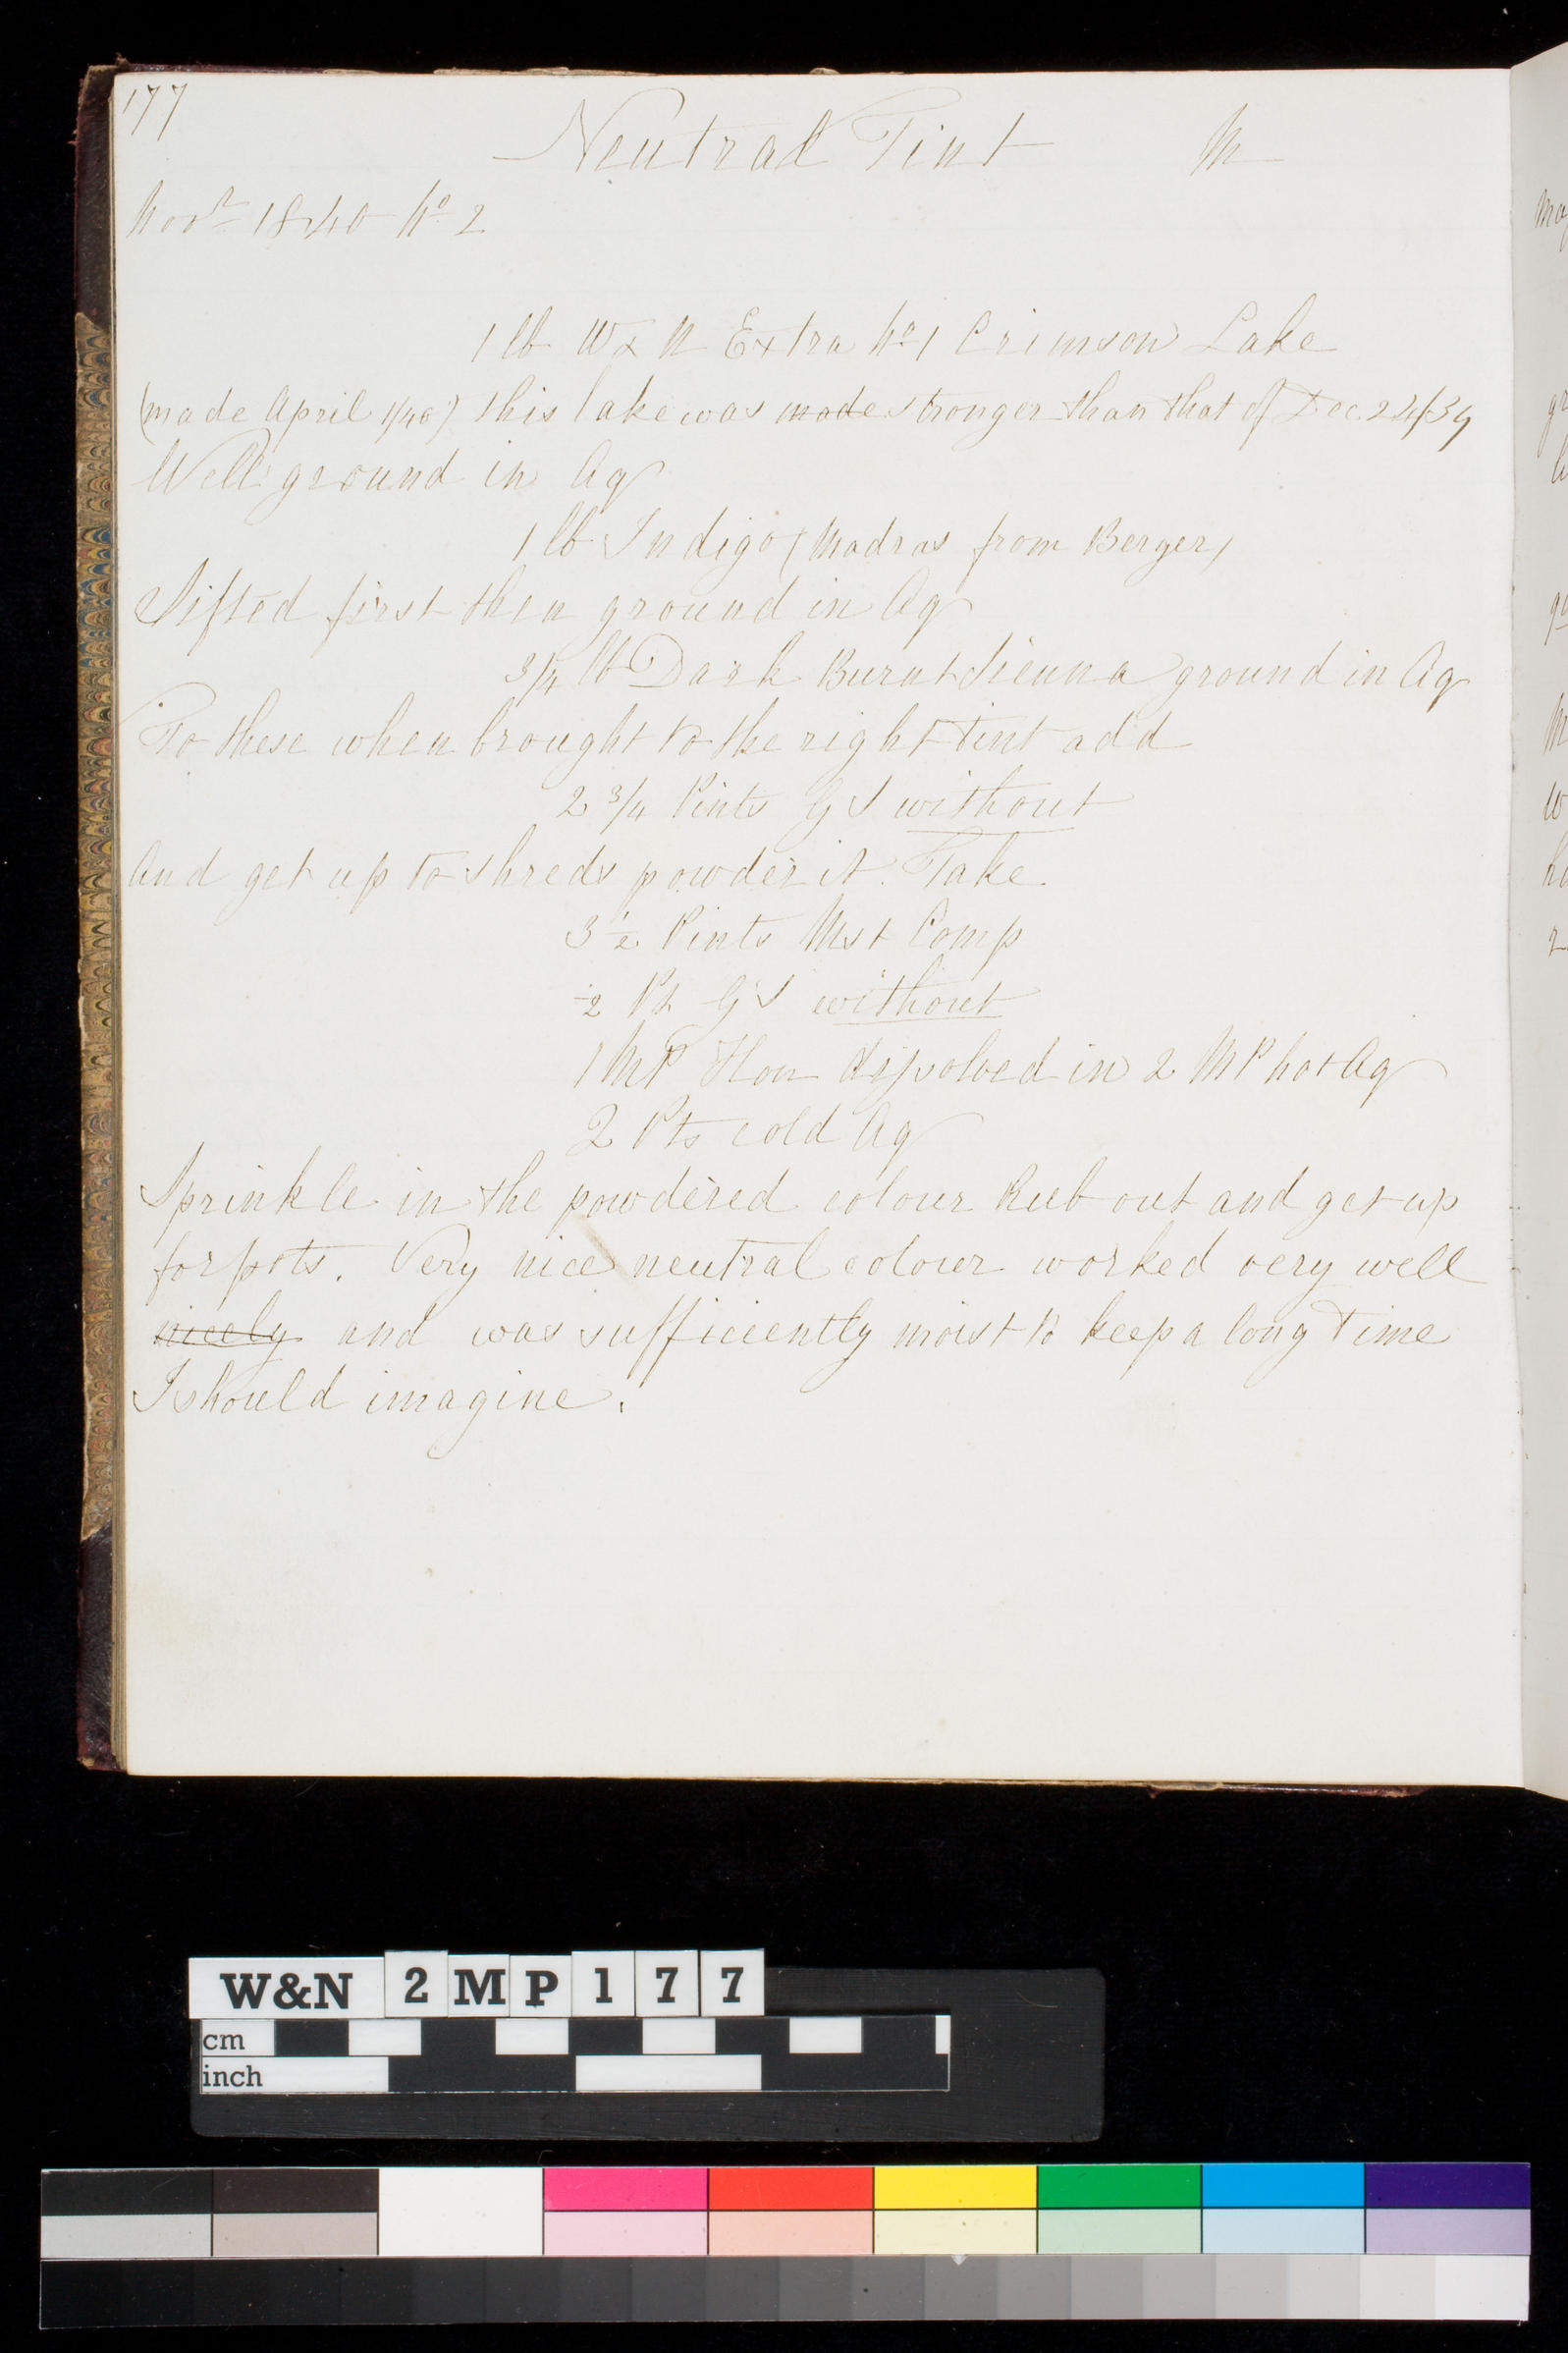 177
Neutral Tint M
Novr 1840 No 2
1 lb W & N Extra No 1 Crimson Lake
(made April 1/40) this lake was made stronger than that of Dec 24/39
Well ground in Aq
1 lb Indigo (Madras from Berger)
Sifted first then ground in Aq
3/4 lb Dark Burnt Sienna ground in Aq
To these when brought to the right tint add
2 3/4 Pints GS without
And get up to shreds powder it. Take
3 1/2 Pints Mst Comp
1/2 Pt GS without
1 MP Hon dissolved in 2 MP hot Aq
2 Pts cold Aq
Sprinkle in the powdered colour Rub out and get up
for pots. Very nice neutral colour worked very well
nicely and was sufficiently moist to keep a long time
I should imagine.
W&N 2MP177
cm
inch